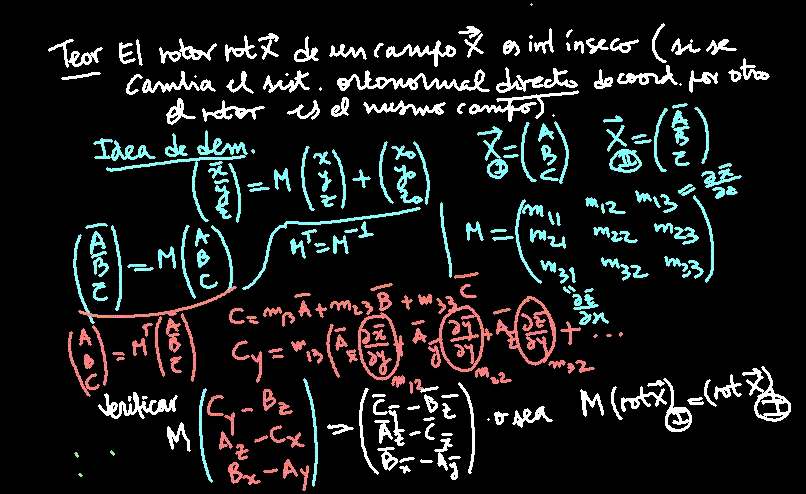 Teor El rotor rot X⃗ de un campo X⃗ es intínseco (si se
cambia el sist. ortonormal directo de coord. por otro
el rotor es el mismo campo).
Idea de dem.
(x̄ ȳ z̄) = M (x y z) + (x₀ y₀ z₀)
X⃗_Ⓘ = (A B C) X⃗_Ⓘ̄ = (Ā B̄ C̄)
(Ā B̄ C̄) = M (A B C) Mᵀ = M⁻¹
M = (m₁₁ m₁₂ m₁₃ = ∂x̄/∂z
m₂₁ m₂₂ m₂₃
m₃₁ m₃₂ m₃₃)
= ∂z̄/∂x
C = m₁₃ Ā + m₂₃ B̄ + m₃₃ C̄
(A B C) = Mᵀ (Ā B̄ C̄)
C_y = m₁₃ (Ā_x̄ ∂x̄/∂y + Ā_ȳ ∂ȳ/∂y + Ā_z̄ ∂z̄/∂y + ...
m₁₂ m₂₂ m₃₂
Verificar
M (C_y - B_z A_z - C_x B_x - A_y) = (C̄_ȳ - B̄_z̄ Ā_z̄ - C̄_x̄ B̄_x̄ - Ā_ȳ) o sea M (rot X⃗)_Ⓘ = (rot X⃗)_Ⓘ̄